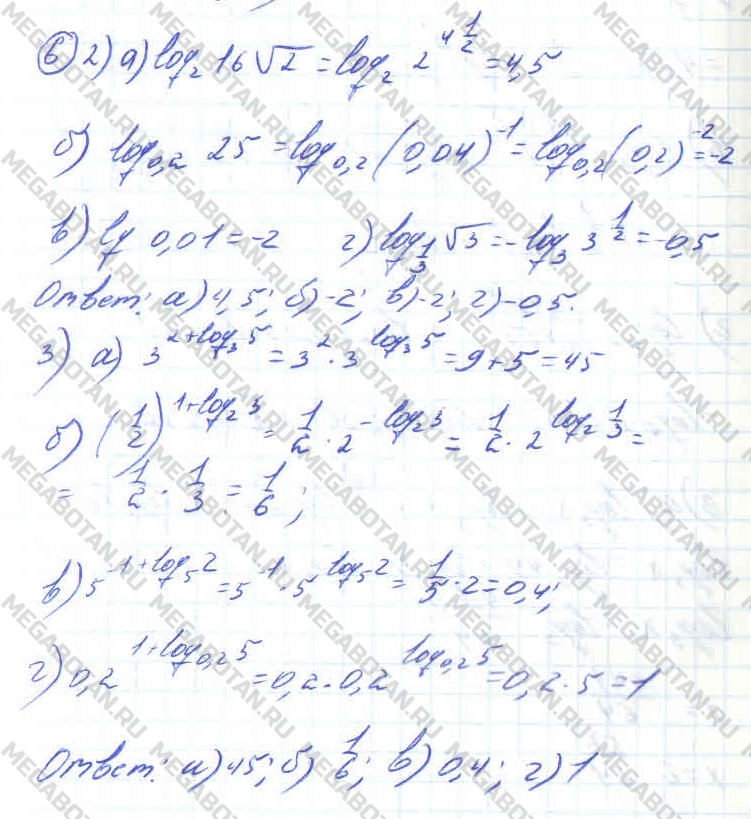 ⑥ 2) а) log₂ 16√2 = log₂ 2^(4 1/2) = 4,5
б) log₀,₂ 25 = log₀,₂ (0,04)⁻¹ = log₀,₂ (0,2)⁻² = -2
в) lg 0,01 = -2 г) log_(1/3) √3 = -log₃ 3^(1/2) = -0,5
Ответ: а) 4,5; б) -2; в) -2; г) -0,5.
3) а) 3^(2+log₃5) = 3² · 3^(log₃5) = 9 + 5 = 45
б) (1/2)^(1+log₂3) = 1/2 · 2^(-log₂3) = 1/2 · 2^(log₂ 1/3) =
= 1/2 · 1/3 = 1/6;
в) 5^(-1+log₅2) = 5⁻¹ · 5^(log₅2) = 1/5 · 2 = 0,4;
г) 0,2^(1+log₀,₂5) = 0,2 · 0,2^(log₀,₂5) = 0,2 · 5 = 1
Ответ: а) 45; б) 1/6; в) 0,4; г) 1
MEGABOTAN.RU